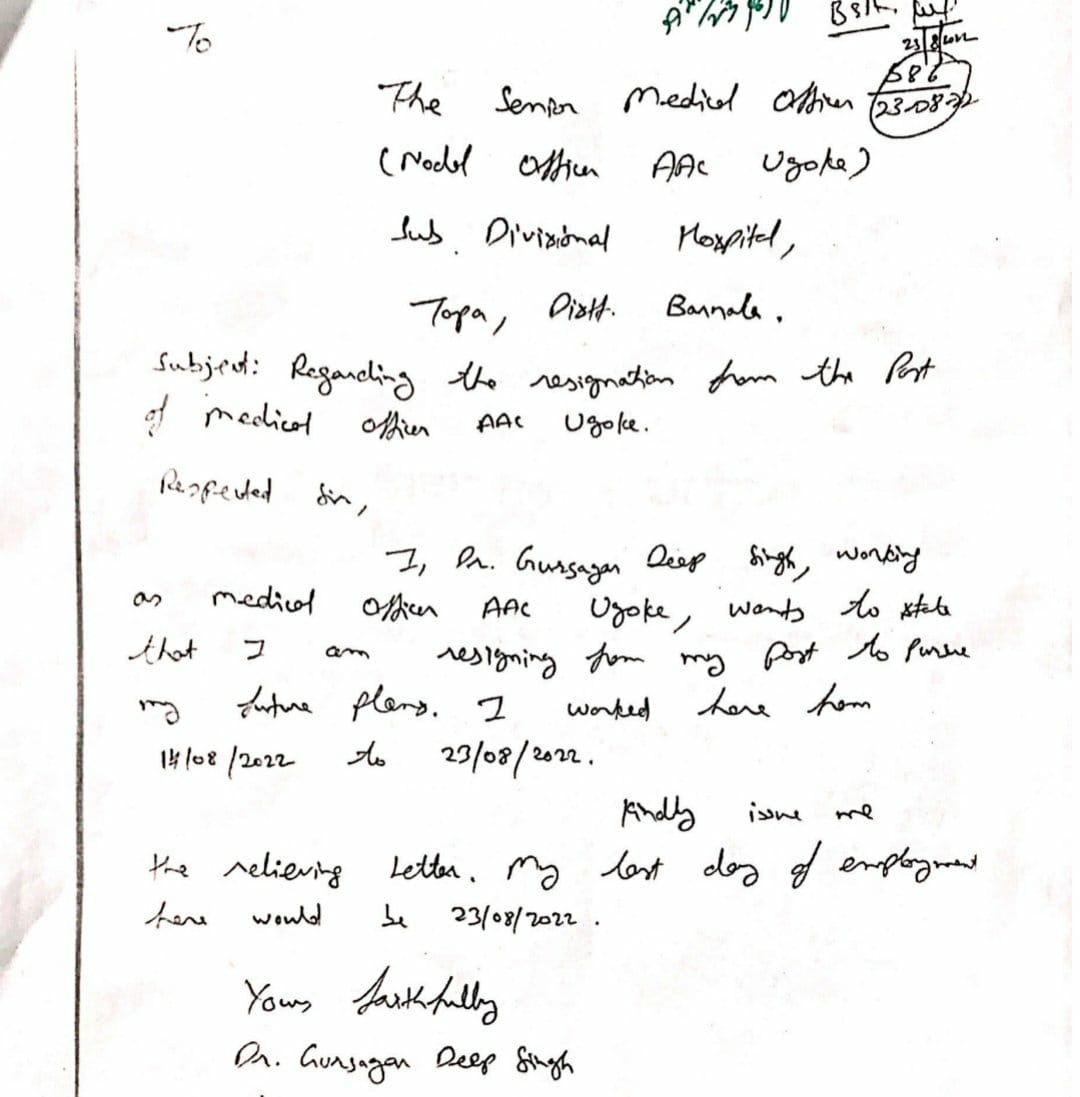 To
BSK
23/8/2022
586
23-08-22
The Senior Medical Officer
(Nodal Officer AAC Ugoke)
Sub Divisional Hospital,
Tapa, Distt. Barnala.
Subject: Regarding the resignation from the Post
of medical officer AAC Ugoke.
Respected Sir,
I, Dr. Gursagar Deep Singh, working
as medical officer AAC Ugoke, wants to state
that I am resigning from my post to pursue
my future plans. I worked here from
14/08/2022 to 23/08/2022.
Kindly issue me
the relieving Letter. My last day of employment
here would be 23/08/2022.
Yours faithfully
Dr. Gursagar Deep Singh